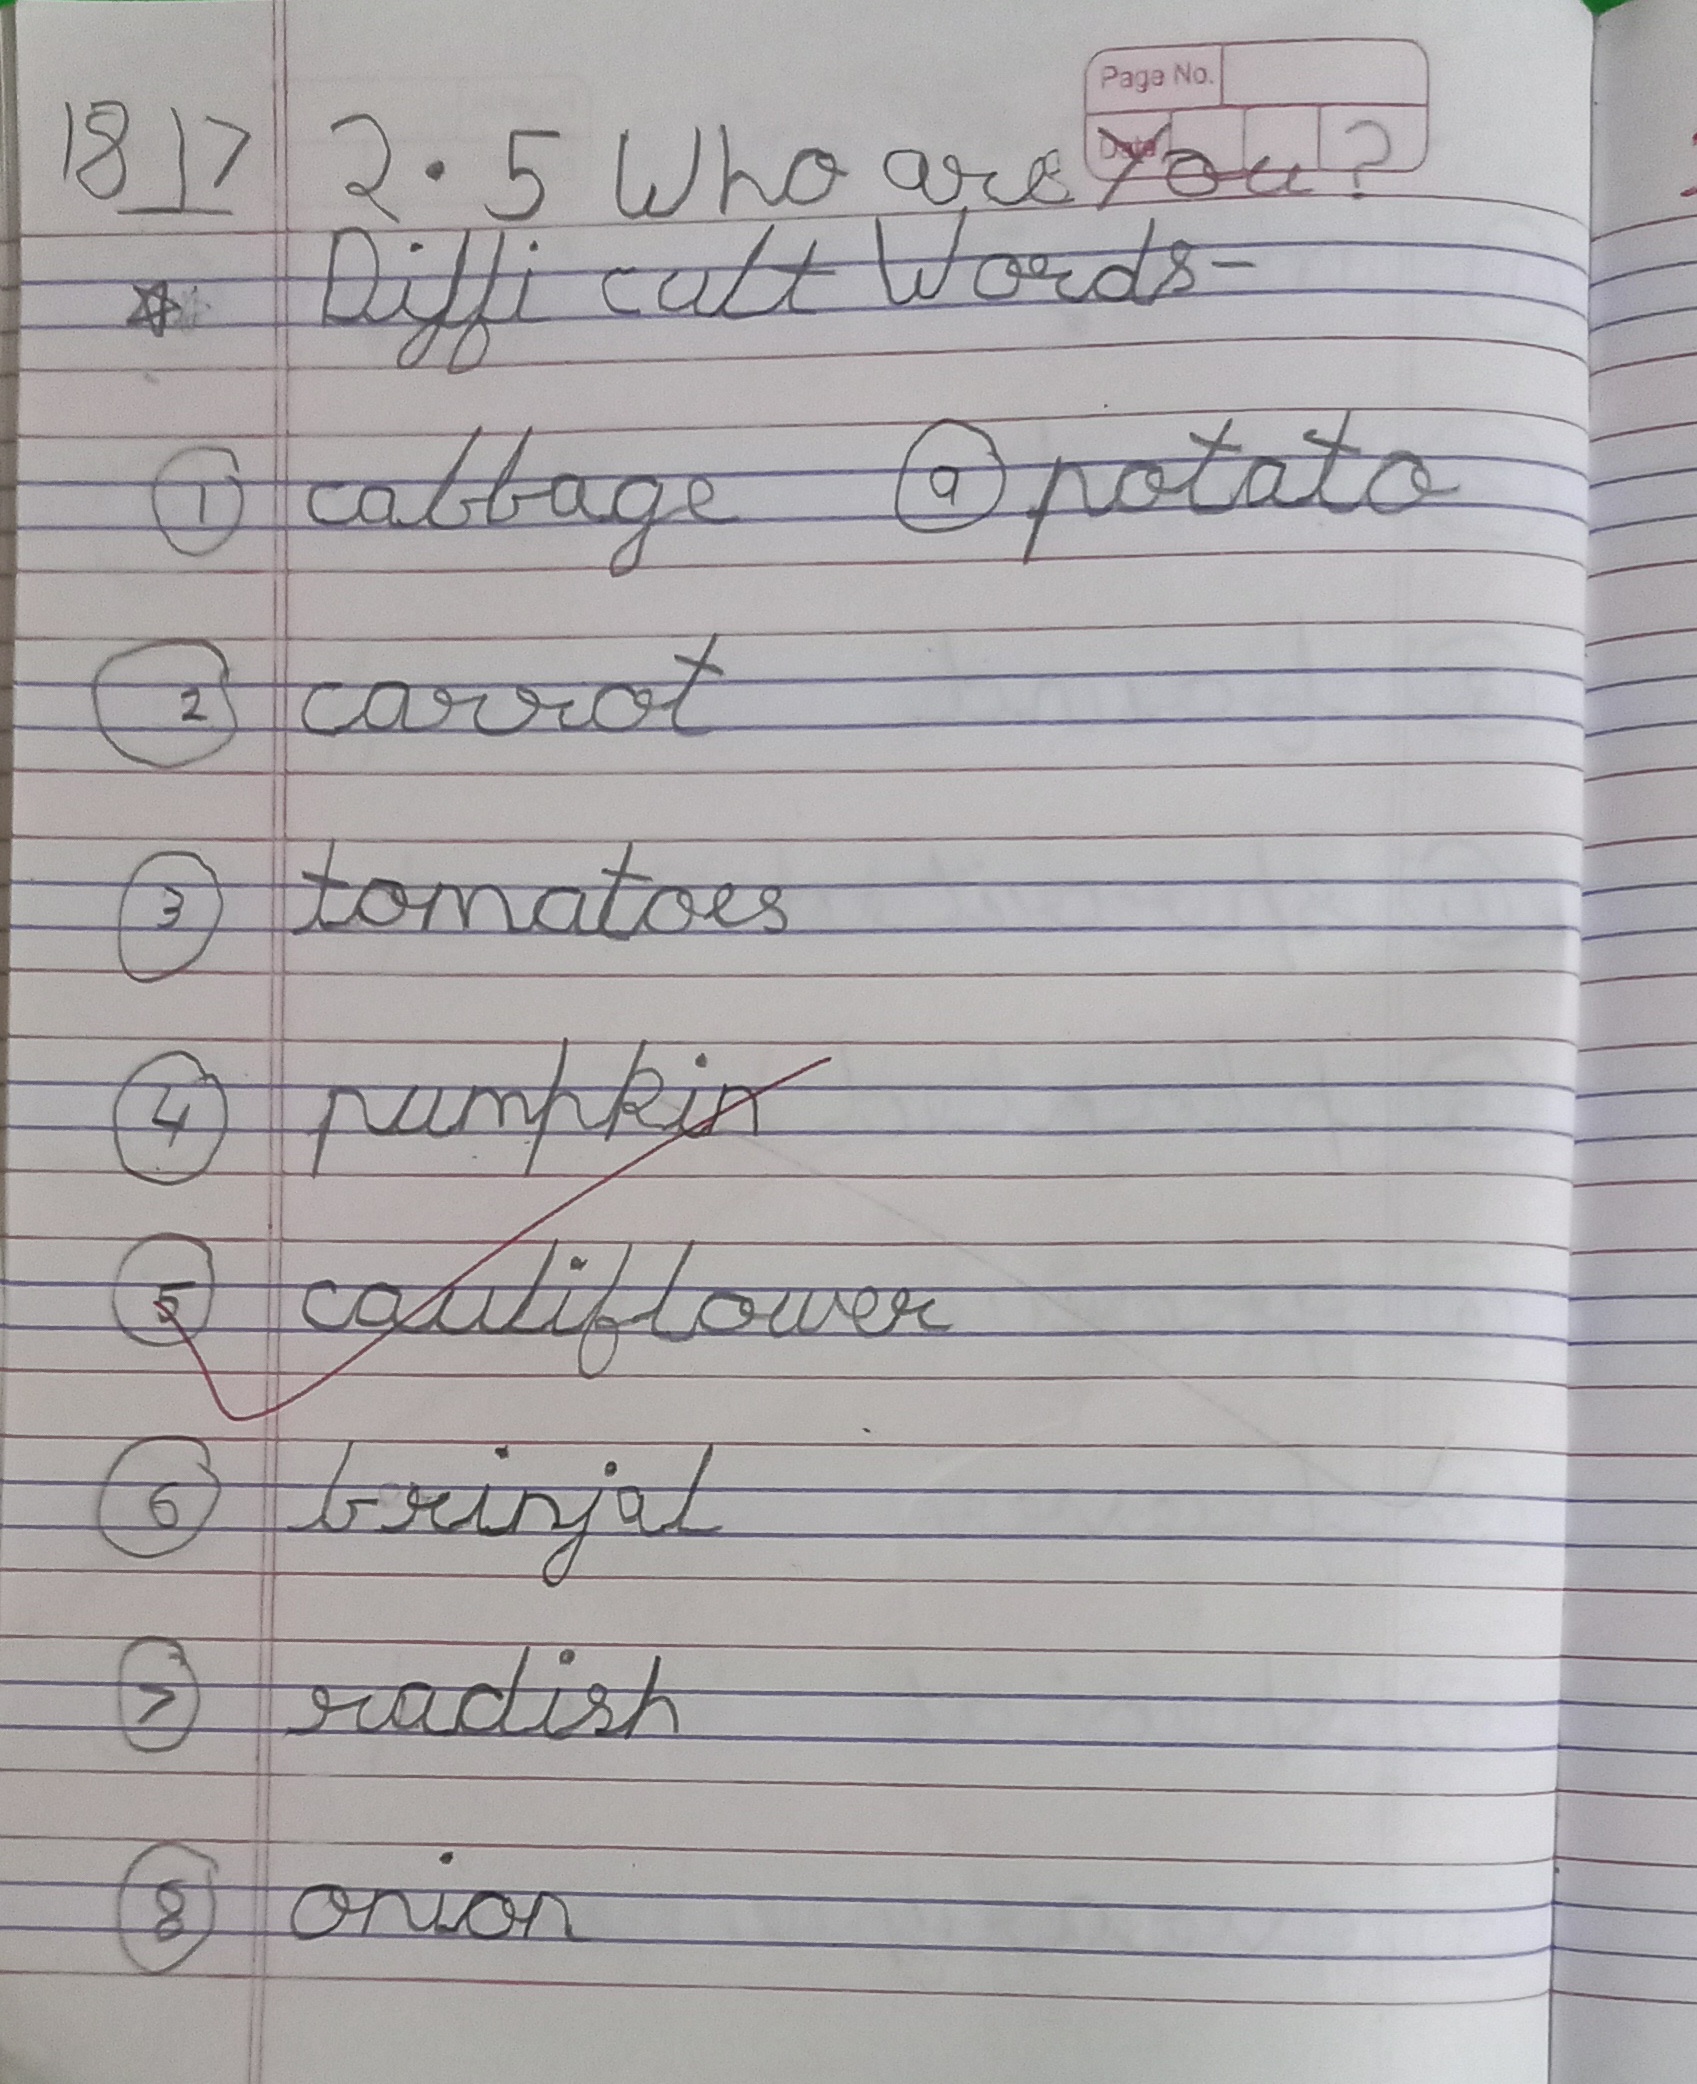 Page No.
Date
18|7 2.5 Who are You?
Difficult Words-
1 cabbage
2 carrot
3 tomatoes
4 pumpkin
5 cauliflower
6 brinjal
7 radish
8 onion
9 potato